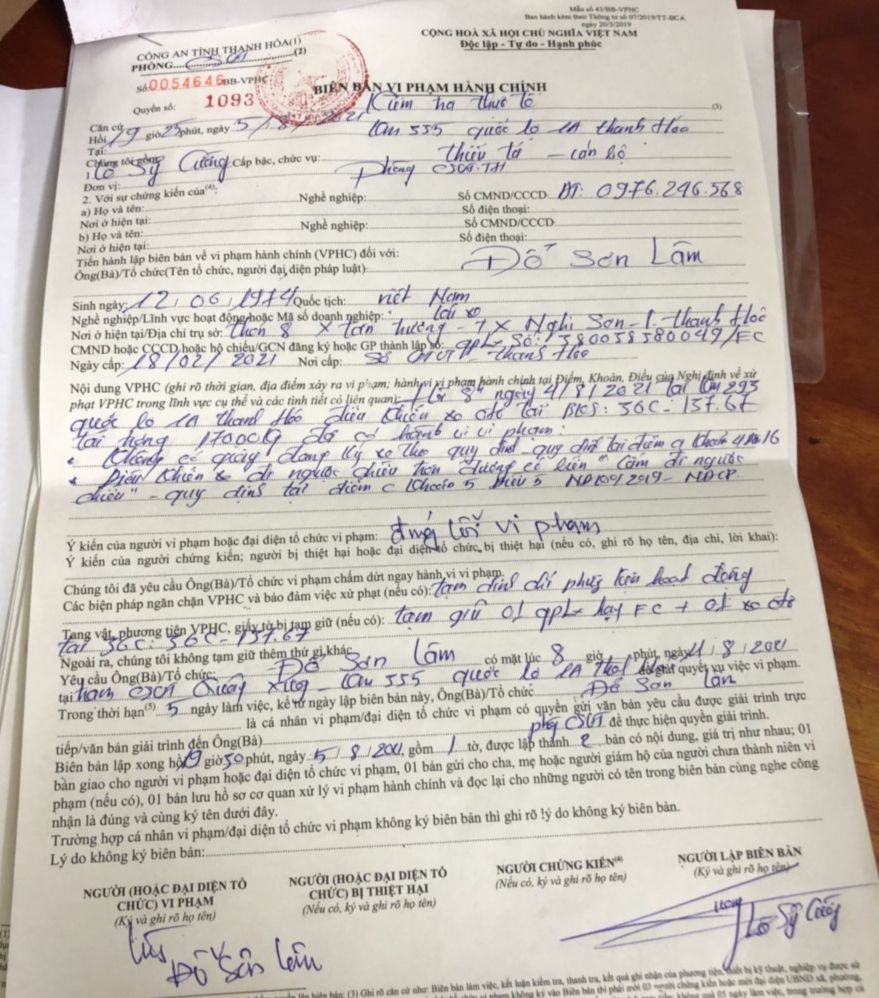 Mẫu số 43/BB-VPHC
Ban hành kèm theo Thông tư số 07/2019/TT-BCA
ngày 20/3/2019
CÔNG AN TỈNH THANH HÓA(1)
PHÒNG.... (2)
CỘNG HOÀ XÃ HỘI CHỦ NGHĨA VIỆT NAM
Độc lập - Tự do - Hạnh phúc
Số 0054646 BB-VPHC
Quyển số: 1093
BIÊN BẢN VI PHẠM HÀNH CHÍNH
Căn cứ: Kiểm tra thực tế (3)
Hồi 19 giờ 25 phút, ngày 5/8/2021
Tại: Km 555 quốc lộ 1A Thanh Hóa
Chúng tôi gồm:
1. Lê Sỹ Cường Cấp bậc, chức vụ: Thiếu tá - cán bộ
Đơn vị: Phòng CSGT.TH
2. Với sự chứng kiến của(4):
a) Họ và tên: Nghề nghiệp: Số CMND/CCCD ĐT: 0976.246.568
Nơi ở hiện tại: Số điện thoại:
b) Họ và tên: Nghề nghiệp: Số CMND/CCCD
Nơi ở hiện tại: Số điện thoại:
Tiến hành lập biên bản về vi phạm hành chính (VPHC) đối với:
Ông(Bà)/Tổ chức(Tên tổ chức, người đại diện pháp luật): Đỗ Sơn Lâm
Sinh ngày: 12/06/1974 Quốc tịch: Việt Nam
Nghề nghiệp/Lĩnh vực hoạt động hoặc Mã số doanh nghiệp: Lái xe
Nơi ở hiện tại/Địa chỉ trụ sở: Thôn 8 X Tân Trường - TX Nghi Sơn - T. Thanh Hóa
CMND hoặc CCCD hoặc hộ chiếu/GCN đăng ký hoặc GP thành lập số: gplx số: 380058580049/FC
Ngày cấp: 18/02/2021 Nơi cấp: Sở GTVT Thanh Hóa
Nội dung VPHC (ghi rõ thời gian, địa điểm xảy ra vi phạm; hành vi vi phạm hành chính tại Điểm, Khoản, Điều của Nghị định về xử
phạt VPHC trong lĩnh vực cụ thể và các tình tiết có liên quan): ngày 4/8/2021 tại Km 293
quốc lộ 1A Thanh Hóa điều khiển xe ôtô tải BKS: 36C-137.67
tải trọng 17000KG đã có hành vi vi phạm:
Không có giấy đăng ký xe theo quy định - quy định tại điểm a khoản 4 Đ 16
* Điều khiển xe đi ngược chiều trên đường có biển "Cấm đi ngược
chiều" - quy định tại điểm c khoản 5 Điều 5 NĐ 100/2019-NĐCP.
Ý kiến của người vi phạm hoặc đại diện tổ chức vi phạm: đúng lỗi vi phạm
Ý kiến của người chứng kiến; người bị thiệt hại hoặc đại diện tổ chức bị thiệt hại (nếu có, ghi rõ họ tên, địa chỉ, lời khai):
Chúng tôi đã yêu cầu Ông(Bà)/Tổ chức vi phạm chấm dứt ngay hành vi vi phạm.
Các biện pháp ngăn chặn VPHC và bảo đảm việc xử phạt (nếu có): tạm đình chỉ phương tiện hoạt động
Tang vật, phương tiện VPHC, giấy tờ bị tạm giữ (nếu có): tạm giữ 01 gplx hạng FC + 01 xe ôtô
tải 36C: 36C-137.67
Ngoài ra, chúng tôi không tạm giữ thêm thứ gì khác.
Yêu cầu Ông(Bà)/Tổ chức: Đỗ Sơn Lâm có mặt lúc 8 giờ phút, ngày /8/2021
tại trạm CSGT Quảng Xương - Km 555 quốc lộ 1A để giải quyết vụ việc vi phạm.
Trong thời hạn(5) 5 ngày làm việc, kể từ ngày lập biên bản này, Ông(Bà)/Tổ chức Đỗ Sơn Lâm
là cá nhân vi phạm/đại diện tổ chức vi phạm có quyền gửi văn bản yêu cầu được giải trình trực
tiếp/văn bản giải trình đến Ông(Bà) phòng CSGT để thực hiện quyền giải trình.
Biên bản lập xong hồi 19 giờ 50 phút, ngày 5/8/2021, gồm 1 tờ, được lập thành 2 bản có nội dung, giá trị như nhau; 01
bản giao cho người vi phạm hoặc đại diện tổ chức vi phạm, 01 bản gửi cho cha, mẹ hoặc người giám hộ của người chưa thành niên vi
phạm (nếu có), 01 bản lưu hồ sơ cơ quan xử lý vi phạm hành chính và đọc lại cho những người có tên trong biên bản cùng nghe công
nhận là đúng và cùng ký tên dưới đây.
Trường hợp cá nhân vi phạm/đại diện tổ chức vi phạm không ký biên bản thì ghi rõ lý do không ký biên bản.
Lý do không ký biên bản:
NGƯỜI (HOẶC ĐẠI DIỆN TỔ
CHỨC) VI PHẠM
(Ký và ghi rõ họ tên)
NGƯỜI (HOẶC ĐẠI DIỆN TỔ
CHỨC) BỊ THIỆT HẠI
(Nếu có, ký và ghi rõ họ tên)
NGƯỜI CHỨNG KIẾN(4)
(Nếu có, ký và ghi rõ họ tên)
NGƯỜI LẬP BIÊN BẢN
(Ký và ghi rõ họ tên)
Đỗ Sơn Lâm
Lê Sỹ Cường
(3) Ghi rõ căn cứ như: Biên bản làm việc, kết luận kiểm tra, thanh tra, kết quả ghi nhận của phương tiện, thiết bị kỹ thuật, nghiệp vụ được sử